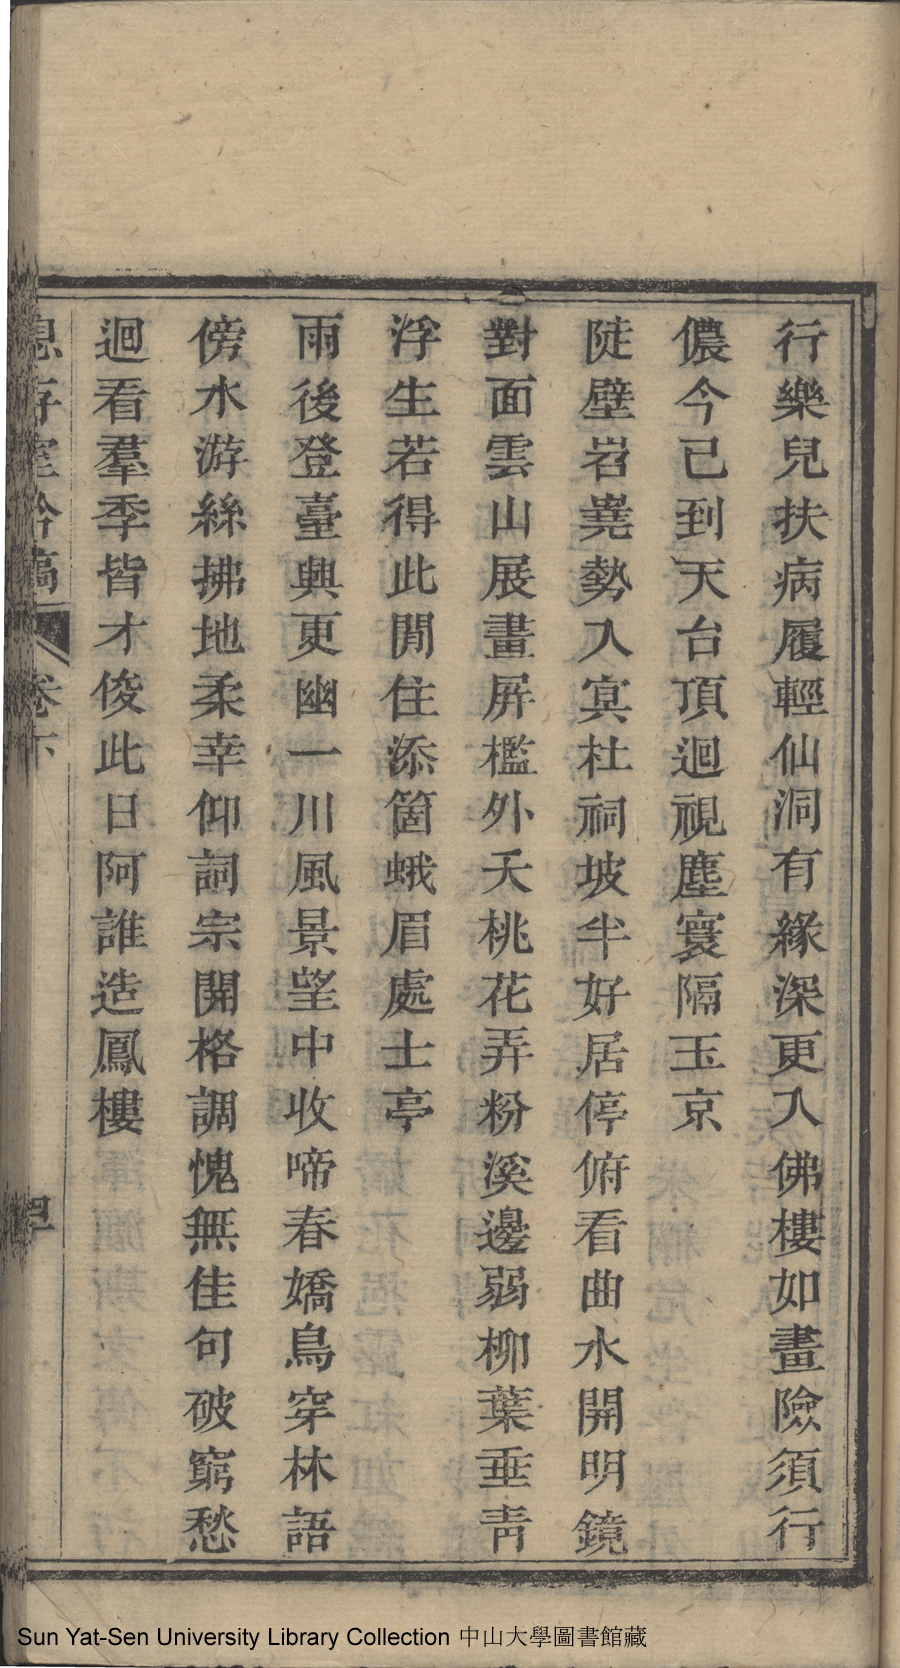 行樂兒扶病履輕仙洞有緣深更入佛樓如畫險須行
儂今已到天台頂迴視塵寰隔玉京
陡壁岧嶤勢入冥杜祠坡半好居停俯看曲水開明鏡
對面雲山展畫屏檻外夭桃花弄粉溪邊弱柳葉垂青
浮生若得此閒住添箇蛾眉處士亭
雨後登臺興更幽一川風景望中收啼春嬌鳥穿林語
傍水游絲拂地柔幸仰詞宗開格調愧無佳句破窮愁
迴看羣季皆才俊此日阿誰造鳳樓
息存室吟稿 卷下
Sun Yat-Sen University Library Collection 中山大學圖書館藏